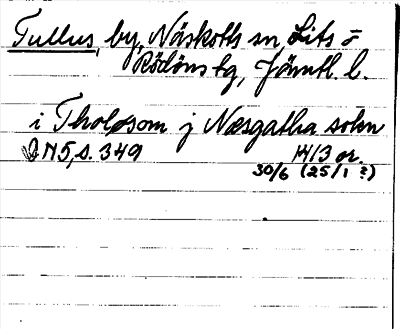 Tullus, by, Näskotts sn, Lits o
Rödöns tg, Jämtl. l.
i Tholosom j Næsgatha sokn
DN 5, s. 349 1413 or.
30/6 (25/1 ?)